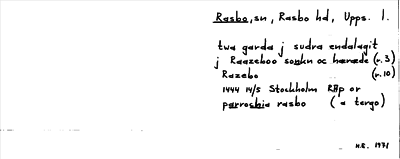 Rasbo, sn, Rasbo hd, Upps. l.
twa garda j sudra endalagit
j Raazeboo sonkn oc hærade (r. 3)
Razebo (r. 10)
1444 14/5 Stockholm RAp or
parroshia rasbo (a tergo)
H.R. 1971